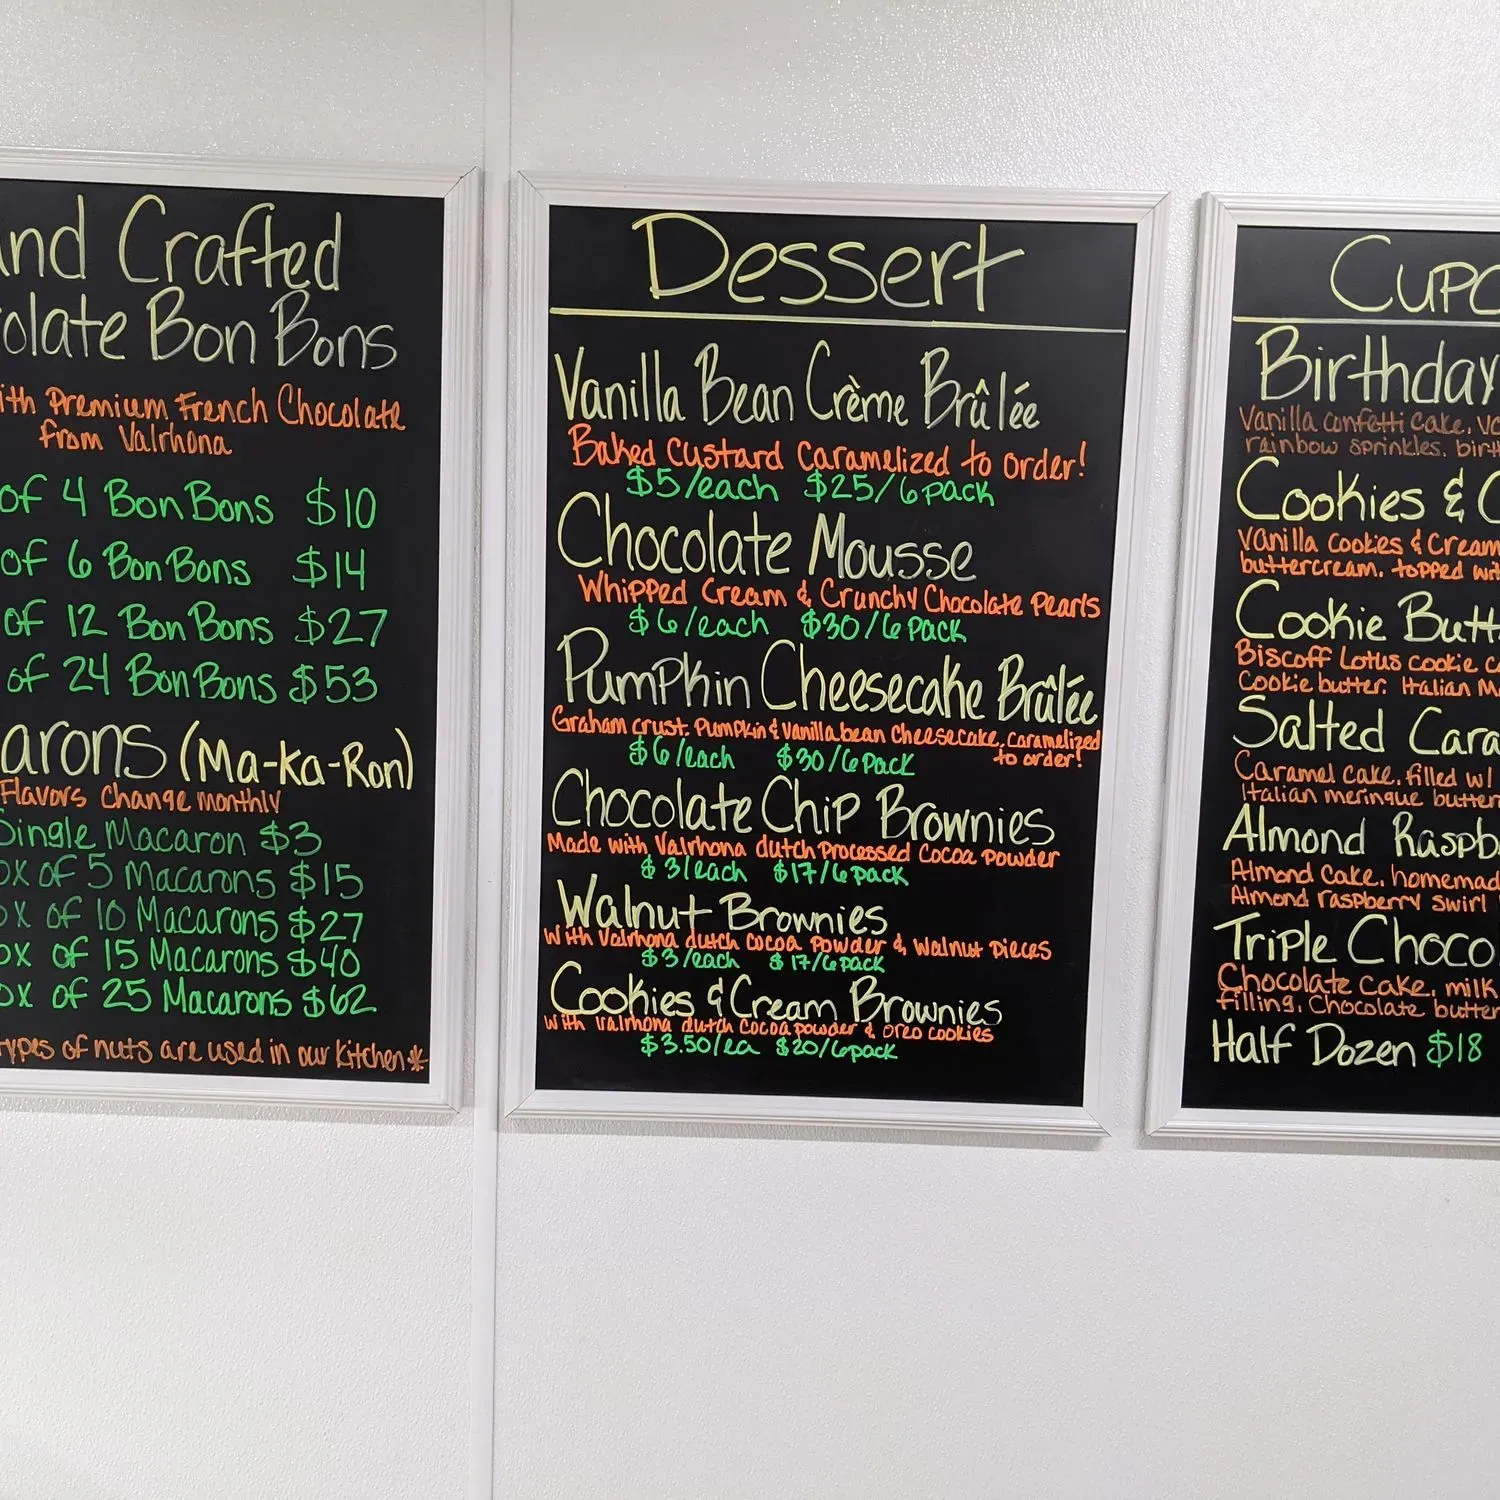 Crafted
Bon Bons
Premium French Chocolate
from Valrhona
of 4 BonBons $10
of 6 BonBons $14
of 12 BonBons $27
of 24 BonBons $53
(Ma-Ka-Ron)
Flavors change monthly
Single Macaron $3
of 5 Macarons $15
of 10 Macarons $27
of 15 Macarons $40
of 25 Macarons $62
types of nuts are used in our kitchen*
Dessert
Vanilla Bean Crème Brûlée
Baked Custard Caramelized to order!
$5/each $25/6pack
Chocolate Mousse
Whipped Cream & Crunchy Chocolate Pearls
$6/each $30/6pack
Pumpkin Cheesecake Brûlée
Graham crust. Pumpkin & Vanilla bean Cheesecake, caramelized
to order!
$6/each $30/6pack
Chocolate Chip Brownies
Made with Valrhona dutch processed cocoa powder
$3/each $17/6pack
Walnut Brownies
with Valrhona dutch cocoa powder & walnut pieces
$3/each $17/6pack
Cookies & Cream Brownies
with Valrhona dutch cocoa powder & oreo cookies
$3.50/ea $20/6pack
Birthday
Vanilla confetti cake.
rainbow sprinkles.
Cookies &
Vanilla cookies & Cream
buttercream. topped
Cookie
Biscoff Lotus cookie
Cookie butter. Italian
Salted
Caramel cake. filled w/
Italian meringue
Almond
Almond cake. homemade
Almond raspberry swirl
Triple
Chocolate cake. milk
filling. Chocolate
Half Dozen $18